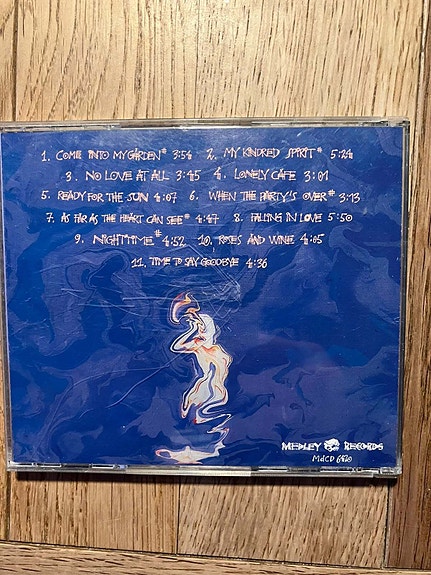 1. COME INTO MY GARDEN* 3:54 2. MY KINDRED SPIRIT* 5:24
3. NO LOVE AT ALL 3:45 4. LONELY CAFE 3:01
5. READY FOR THE SUN 4:07 6. WHEN THE PARTY'S OVER* 3:13
7. AS FAR AS THE HEART CAN SEE* 4:47 8. FALLING IN LOVE 5:50
9. NIGHTTIME* 4:52 10. ROSES AND WINE 4:05
11. TIME TO SAY GOODBYE 4:36
MEDLEY RECORDS
MdCD